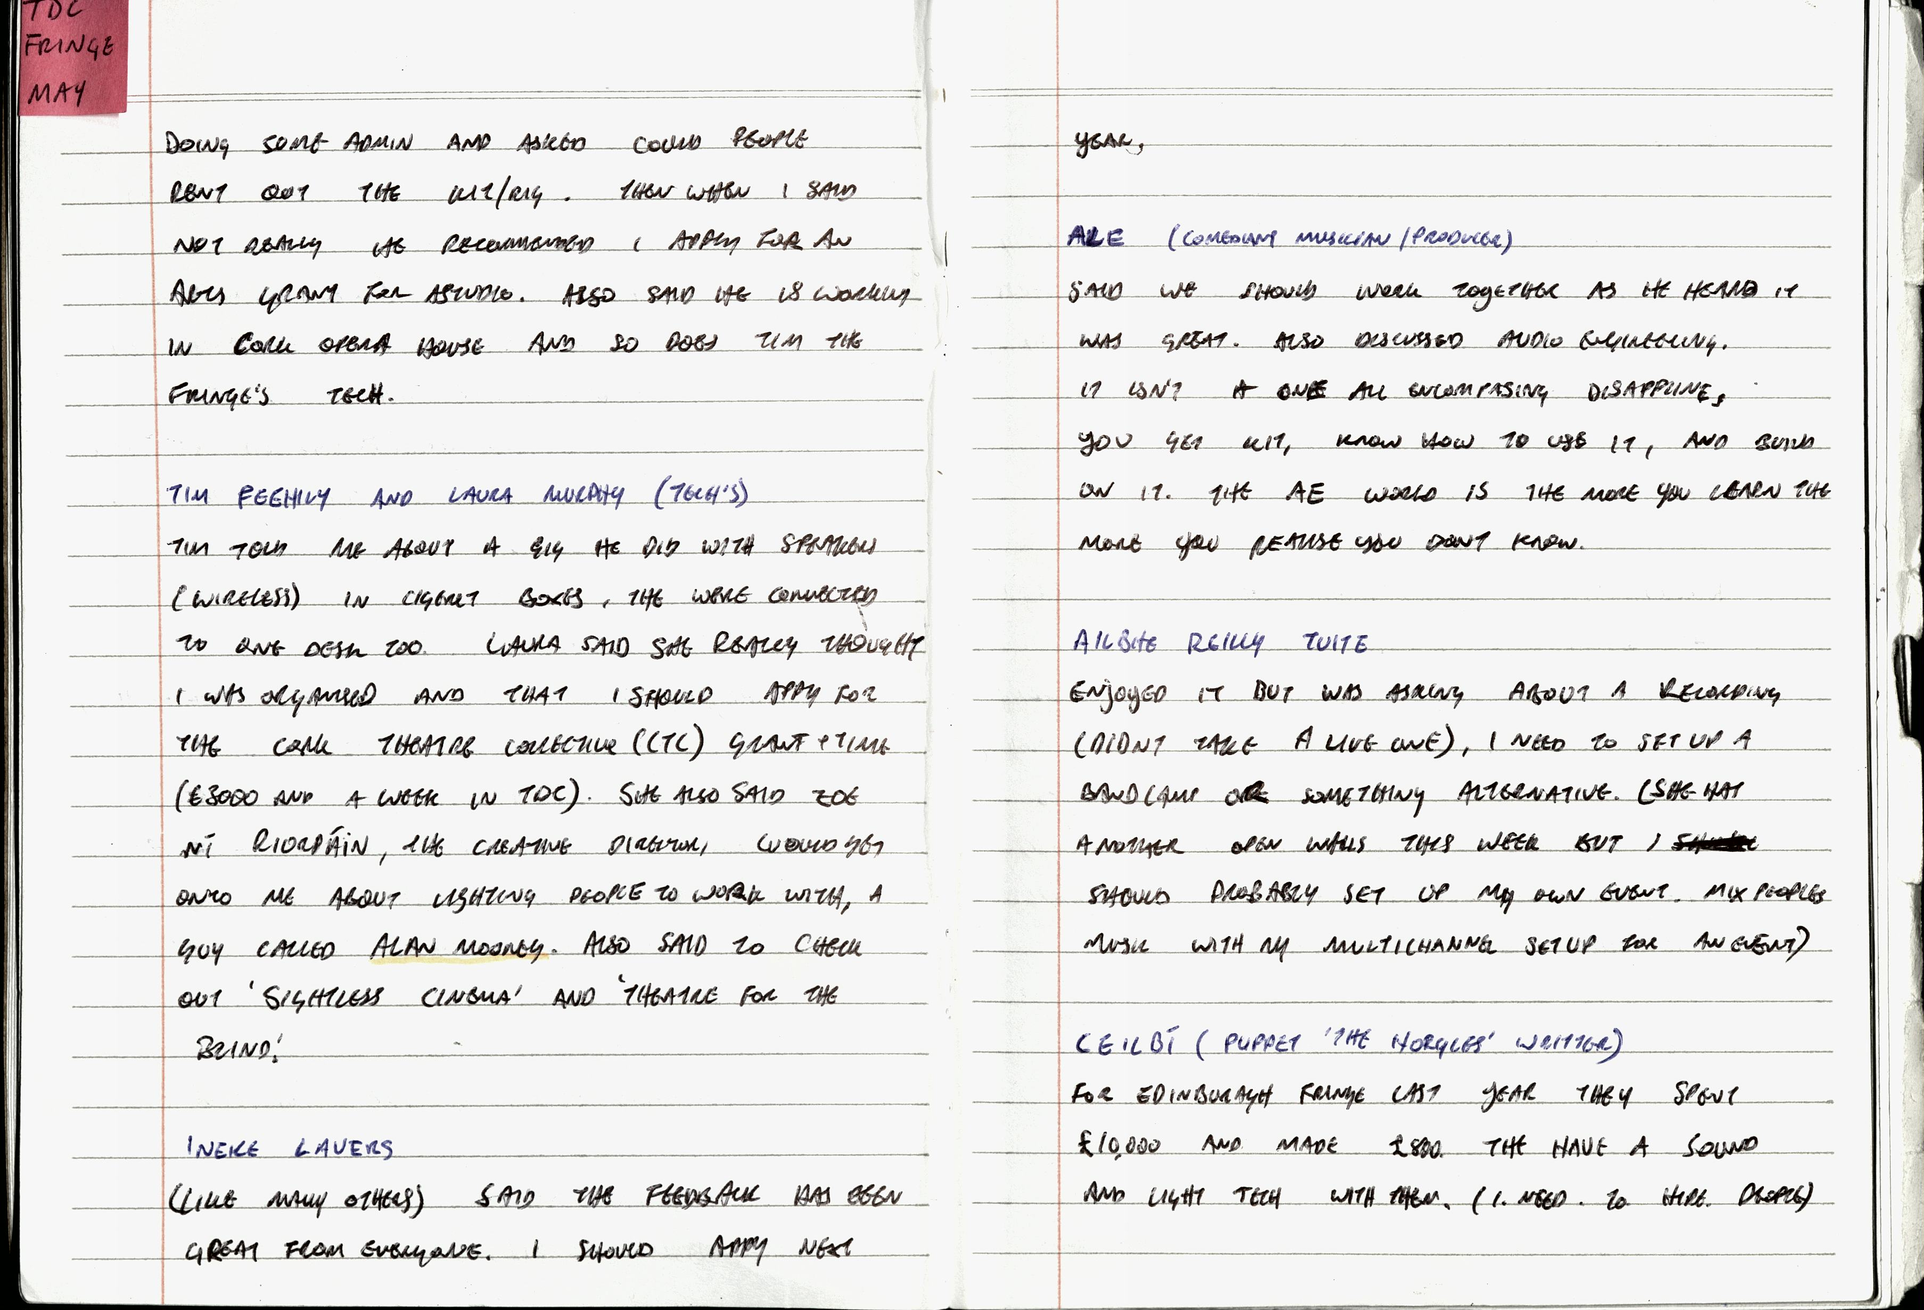 TDC
FRINGE
MAY
DOING SOME ADMIN AND ASKED COULD PEOPLE
RENT OUT THE KIT/RIG. THEN WHEN I SAID
NOT REALLY HE RECOMMENDED I APPLY FOR AN
ARTS GRANT FOR A STUDIO. ALSO SAID HE IS WORKING
IN CORK OPERA HOUSE AND SO DOES TIM THE
FRINGE'S TECH.
TIM FEEHILY AND LAURA MURPHY (TECH'S)
TIM TOLD ME ABOUT A GIG HE DID WITH SPEAKERS
(WIRELESS) IN CIGERET BOXES, THE WERE CONNECTED
TO ONE DESK TOO. LAURA SAID SHE REALLY THOUGHT
I WAS ORGANISED AND THAT I SHOULD APPLY FOR
THE CORK THEATRE COLLECTIVE (CTC) GRANT + TIME
(€3000 AND A WEEK IN TDC). SHE ALSO SAID ZOE
NÍ RIORDÁIN, THE CREATIVE DIRECTOR, WOULD GET
ONTO ME ABOUT LIGHTING PEOPLE TO WORK WITH, A
GUY CALLED ALAN MOONEY. ALSO SAID TO CHECK
OUT 'SIGHTLESS CINEMA' AND 'THEATRE FOR THE
BLIND'.
INEKE LAVERS
(LIKE MANY OTHERS) SAID THE FEEDBACK HAS BEEN
GREAT FROM EVERYONE. I SHOULD APPLY NEXT
YEAR.
ALE (COMEDIANS MUSICIAN/PRODUCER)
SAID WE SHOULD WORK TOGETHER AS HE HEARD IT
WAS GREAT. ALSO DISCUSSED AUDIO ENGINEERING.
IT ISN'T A ONE ALL ENCOMPASING DISAPPLINE,
YOU GET KIT, KNOW HOW TO USE IT, AND BUILD
ON IT. THE AE WORLD IS THE MORE YOU LEARN THE
MORE YOU REALISE YOU DONT KNOW.
AILBHE REILLY TUITE
ENJOYED IT BUT WAS ASKING ABOUT A RECORDING
(DIDNT TAKE A LIVE ONE), I NEED TO SET UP A
BANDCAMP OR SOMETHING ALTERNATIVE. (SHE HAS
ANOTHER OPEN WALLS THIS WEEK BUT I
SHOULD PROBABLY SET UP MY OWN EVENT. MIX PEOPLES
MUSIC WITH MY MULTICHANNEL SETUP FOR AN EVENT)
CEILBÍ (PUPPET 'THE HORGLES' WRITTER)
FOR EDINBURAGH FRINGE LAST YEAR THEY SPENT
£10,000 AND MADE £800. THE HAVE A SOUND
AND LIGHT TECH WITH THEM. (I NEED TO HIRE PEOPLE)